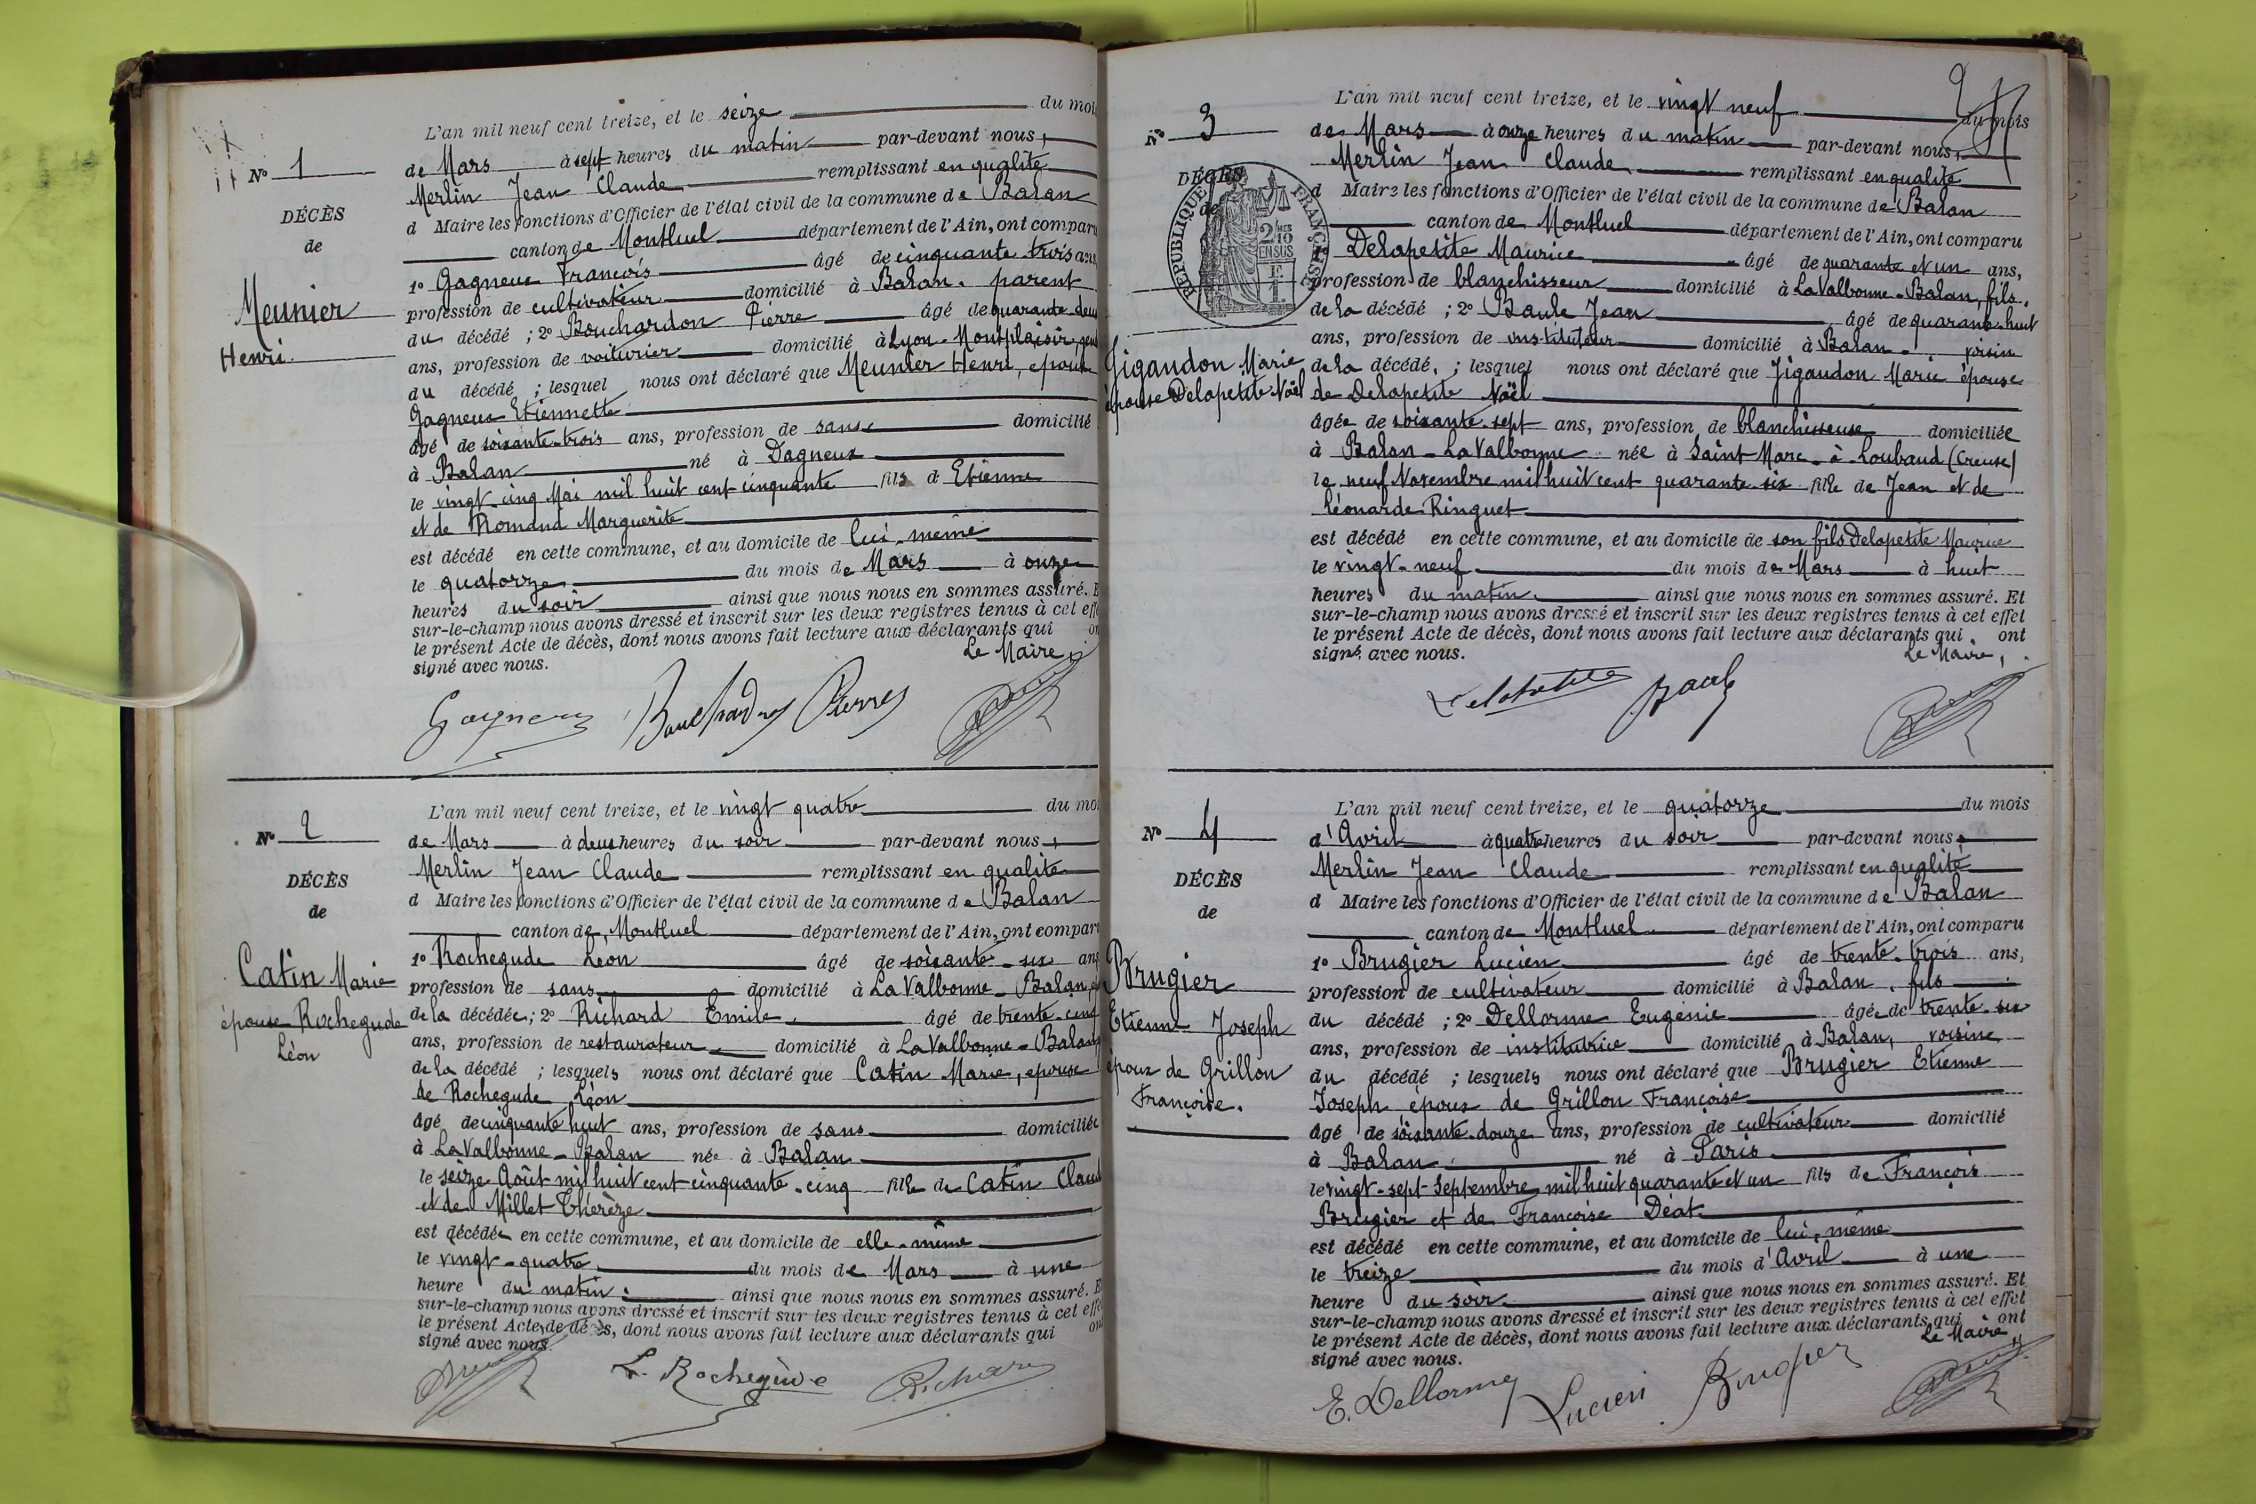 L'an mil neuf cent treize, et le seize du mois
N° 1
de Mars à sept heures du matin par-devant nous,
Merlin Jean Claude remplissant en qualité
DÉCÈS
d Maire les fonctions d'Officier de l'état civil de la commune de Balan
de
canton de Montluel département de l'Ain, ont comparu
1° Gagneux François âgé de cinquante trois ans,
Meunier
profession de cultivateur domicilié à Balan. parent
Henri
du décédé ; 2° Bouchardon Pierre âgé de quarante deux
ans, profession de voiturier domicilié à Lyon-Montplaisir,
du décédé ; lesquel nous ont déclaré que Meunier Henri, époux
Gagneux Etiennette
âgé de soixante-trois ans, profession de sans domicilié
à Balan né à Dagneux
le vingt cinq Mai mil huit cent cinquante fils d Etienne
et de Romand Marguerite
est décédé en cette commune, et au domicile de lui-même
le quatorze du mois de Mars à onze
heures du soir ainsi que nous nous en sommes assuré. E
sur-le-champ nous avons dressé et inscrit sur les deux registres tenus à cet effe
le présent Acte de décès, dont nous avons fait lecture aux déclarants qui on
signé avec nous. Le Maire,
Gagneux Bouchardon Pierre
L'an mil neuf cent treize, et le vingt quatre du moi
N° 2
de Mars à deux heures du soir par-devant nous,
Merlin Jean Claude remplissant en qualité
DÉCÈS
d Maire les fonctions d'Officier de l'état civil de la commune de Balan
de
canton de Montluel département de l'Ain, ont comparu
1° Rochegude Léon âgé de soixante-six ans
Catin Marie
profession de sans domicilié à La Valbonne-Balan,
épouse Rochegude
de la décédée ; 2° Richard Emile âgé de trente-cinq
Léon
ans, profession de restaurateur domicilié à La Valbonne-Balan,
de la décédé ; lesquels nous ont déclaré que Catin Marie, épouse
de Rochegude Léon
âgé de cinquante huit ans, profession de sans domiciliée
à La Valbonne-Balan née à Balan
le seize Août mil huit cent cinquante-cinq fille de Catin Claude
et de Millet Thérèze
est décédée en cette commune, et au domicile de elle-même
le vingt-quatre du mois de Mars à une
heure du matin. ainsi que nous nous en sommes assuré. E
sur-le-champ nous avons dressé et inscrit sur les deux registres tenus à cet effe
le présent Acte de décès, dont nous avons fait lecture aux déclarants qui on
signé avec nous.
L. Rochegude Richard
2
L'an mil neuf cent treize, et le vingt neuf du mois
N° 3
de Mars à onze heures du matin par-devant nous,
Merlin Jean Claude remplissant en qualité
DÉCÈS
d Maire les fonctions d'Officier de l'état civil de la commune de Balan
de
RÉPUBLIQUE FRANÇAISE
2/10 EN SUS
canton de Montluel département de l'Ain, ont comparu
1° Delapetite Maurice âgé de quarante et un ans,
profession de blanchisseur domicilié à La Valbonne-Balan, fils
de la décédé ; 2° Baule Jean âgé de quarante-huit
ans, profession de instituteur domicilié à Balan. voisin
Jigaudon Marie
de la décédé, ; lesquel nous ont déclaré que Jigaudon Marie épouse
épouse Delapetite Noël
de Delapetite Noël
âgée de soixante-sept ans, profession de blanchisseuse domiciliée
à Balan-La Valbonne née à Saint Marc-à-Loubaud (Creuse)
le neuf Novembre mil huit cent quarante-six fille de Jean et de
Léonarde Ringuet
est décédé en cette commune, et au domicile de son fils Delapetite Maurice
le vingt-neuf du mois de Mars à huit
heures du matin ainsi que nous nous en sommes assuré. Et
sur-le-champ nous avons dressé et inscrit sur les deux registres tenus à cet effet
le présent Acte de décès, dont nous avons fait lecture aux déclarants qui ont
signé avec nous. Le Maire,
Delapetite Baule
L'an mil neuf cent treize, et le quatorze du mois
N° 4
d'Avril à quatre heures du soir par-devant nous,
Merlin Jean Claude remplissant en qualité
DÉCÈS
d Maire les fonctions d'Officier de l'état civil de la commune de Balan
de
canton de Montluel département de l'Ain, ont comparu
1° Brugier Lucien âgé de trente-trois ans,
Brugier
profession de cultivateur domicilié à Balan, fils
Etienne Joseph
du décédé ; 2° Dellorme Eugénie âgée de trente-six
ans, profession de institutrice domicilié à Balan, voisine
époux de Grillon
du décédé ; lesquels nous ont déclaré que Brugier Etienne
Françoise.
Joseph époux de Grillon Françoise
âgé de soixante-douze ans, profession de cultivateur domicilié
à Balan né à Paris
le vingt-sept Septembre mil huit quarante et un fils de François
Brugier et de Françoise Déat
est décédé en cette commune, et au domicile de lui-même
le treize du mois d'Avril à une
heure du soir. ainsi que nous nous en sommes assuré. Et
sur-le-champ nous avons dressé et inscrit sur les deux registres tenus à cet effet
le présent Acte de décès, dont nous avons fait lecture aux déclarants qui ont
signé avec nous. Le Maire,
E. Dellorme Lucien Brugier